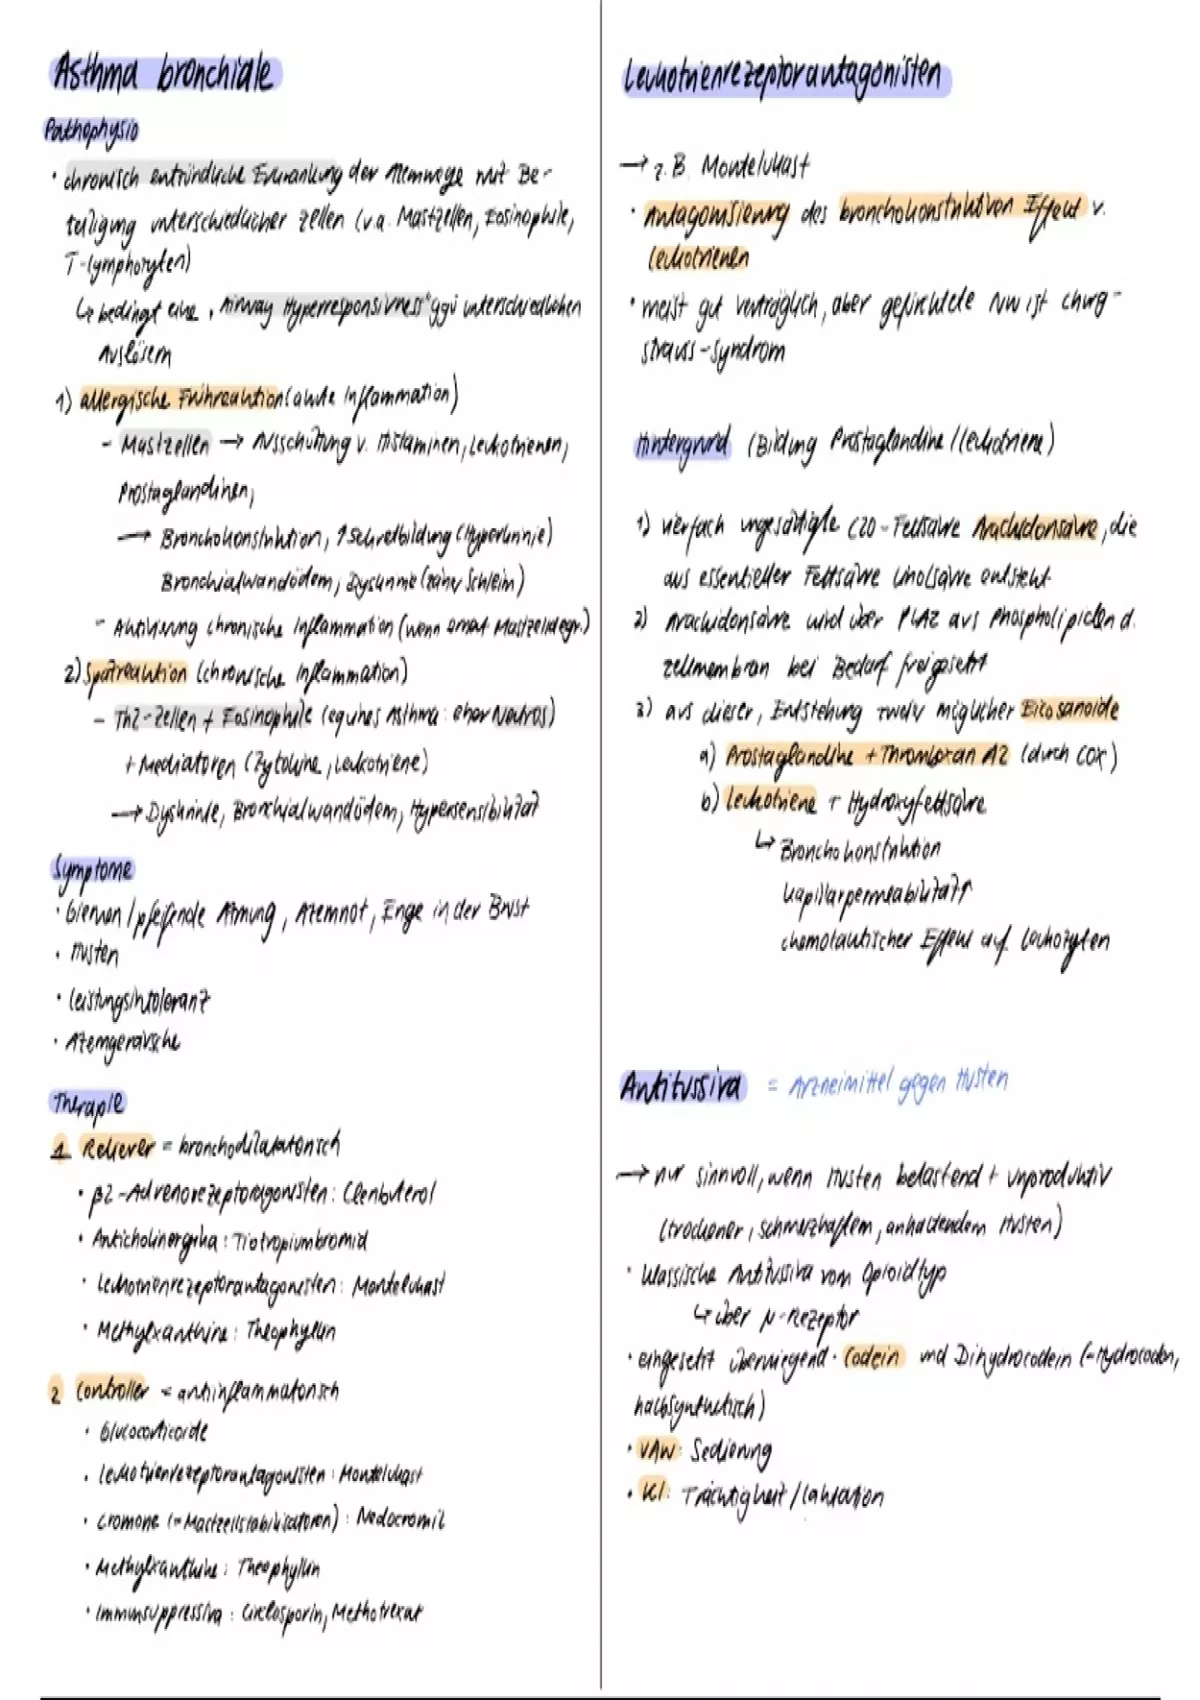 Asthma bronchiale
Pathophysio
· chronisch entzündliche Erkrankung der Atemwege mit Be-
teiligung unterschiedlicher Zellen (v.a. Mastzellen, Eosinophile,
T-lymphozyten)
↳ bedingt eine „Airway Hyperresponsivness" ggü unterschiedlichen
Auslösern
1) allergische Frühreaktion (akute Inflammation)
- Mastzellen → Ausschüttung v. Histaminen, Leukotrienen,
Prostaglandinen,
→ Bronchokonstriktion, ↑ Sekretbildung (Hyperkrinie)
Bronchialwandödem, Dyskrinie (zäher Schleim)
- Aktivierung chronische Inflammation (wenn erneut Mastzelldegr.)
2) Spätreaktion (chronische Inflammation)
- Th2-Zellen + Eosinophile (equines Asthma: eher Neutros)
+ Mediatoren (Zytokine, Leukotriene)
→ Dyskrinie, Bronchialwandödem, Hypersensibilität
Symptome
· Giemen / pfeifende Atmung, Atemnot, Enge in der Brust
· Husten
· Leistungsintoleranz
· Atemgeräusche
Therapie
1 Reliever = bronchodilatatorisch
· β2-Adrenorezeptoragonisten: Clenbuterol
· Anticholinergika: Tiotropiumbromid
· Leukotrienrezeptorantagonisten: Montelukast
· Methylxanthine: Theophyllin
2 Controller = antiinflammatorisch
· Glucocorticoide
· Leukotrienrezeptorantagonisten: Montelukast
· Cromone (= Mastzellstabilisatoren): Nedocromil
· Methylxanthine: Theophyllin
· Immunsuppressiva: Ciclosporin, Methotrexat
Leukotrienrezeptorantagonisten
→ z.B. Montelukast
· Antagonisierung des bronchokonstriktiven Effekt v.
Leukotrienen
· meist gut verträglich, aber gefürchtete NW ist Churg-
Strauss-Syndrom
Hintergrund (Bildung Prostaglandine / Leukotriene)
1) vierfach ungesättigte C20-Fettsäure Arachidonsäure, die
aus essentieller Fettsäure Linolsäure entsteht
2) Arachidonsäure wird über PLA2 aus Phospholipiden d.
Zellmembran bei Bedarf freigesetzt
3) aus dieser, Entstehung zweier möglicher Eicosanoide
a) Prostaglandine + Thromboxan A2 (durch COX)
b) Leukotriene + Hydroxyfettsäure
↳ Bronchokonstriktion
Kapillarpermeabilität↑
chemotaktischer Effekt auf Leukozyten
Antitussiva = Arzneimittel gegen Husten
→ nur sinnvoll, wenn Husten belastend + unproduktiv
(trockener, schmerzhaftem, anhaltendem Husten)
· klassische Antitussiva vom Opioidtyp
↳ über μ-Rezeptor
· eingesetzt überwiegend · Codein und Dihydrocodein (=Hydrocodon,
halbsynthetisch)
· UAW: Sedierung
· KI: Trächtigkeit / Laktation